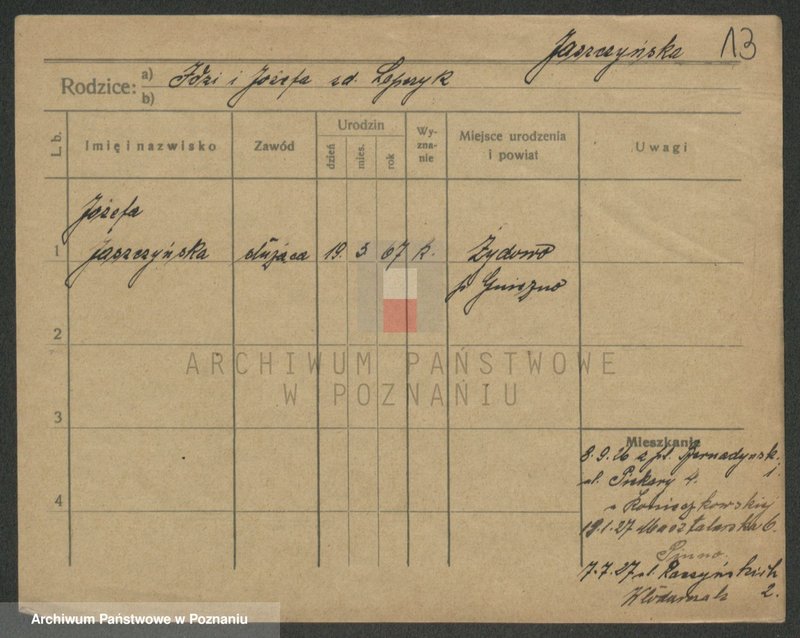 Jaszczyńska 13
Rodzice: a) Idzi i Józefa zd. Lopczyk
b)
L. b. Imię i nazwisko Zawód Urodzin dzień mies. rok Wy-zna-nie Miejsce urodzenia i powiat Uwagi
Józefa
1 Jaszczyńska służąca 19 3 07 k. Żydowo
p. Gniezno
2
ARCHIWUM PAŃSTWOWE
W POZNANIU
3
Mieszkanie
8.9.26 z pl. Bernadyńsk. 1.
ul. Piekary 4.
19.1.27 Masztalarska 6.
4
7.7.27 ul. Raczyńskich 2.
Archiwum Państwowe w Poznaniu